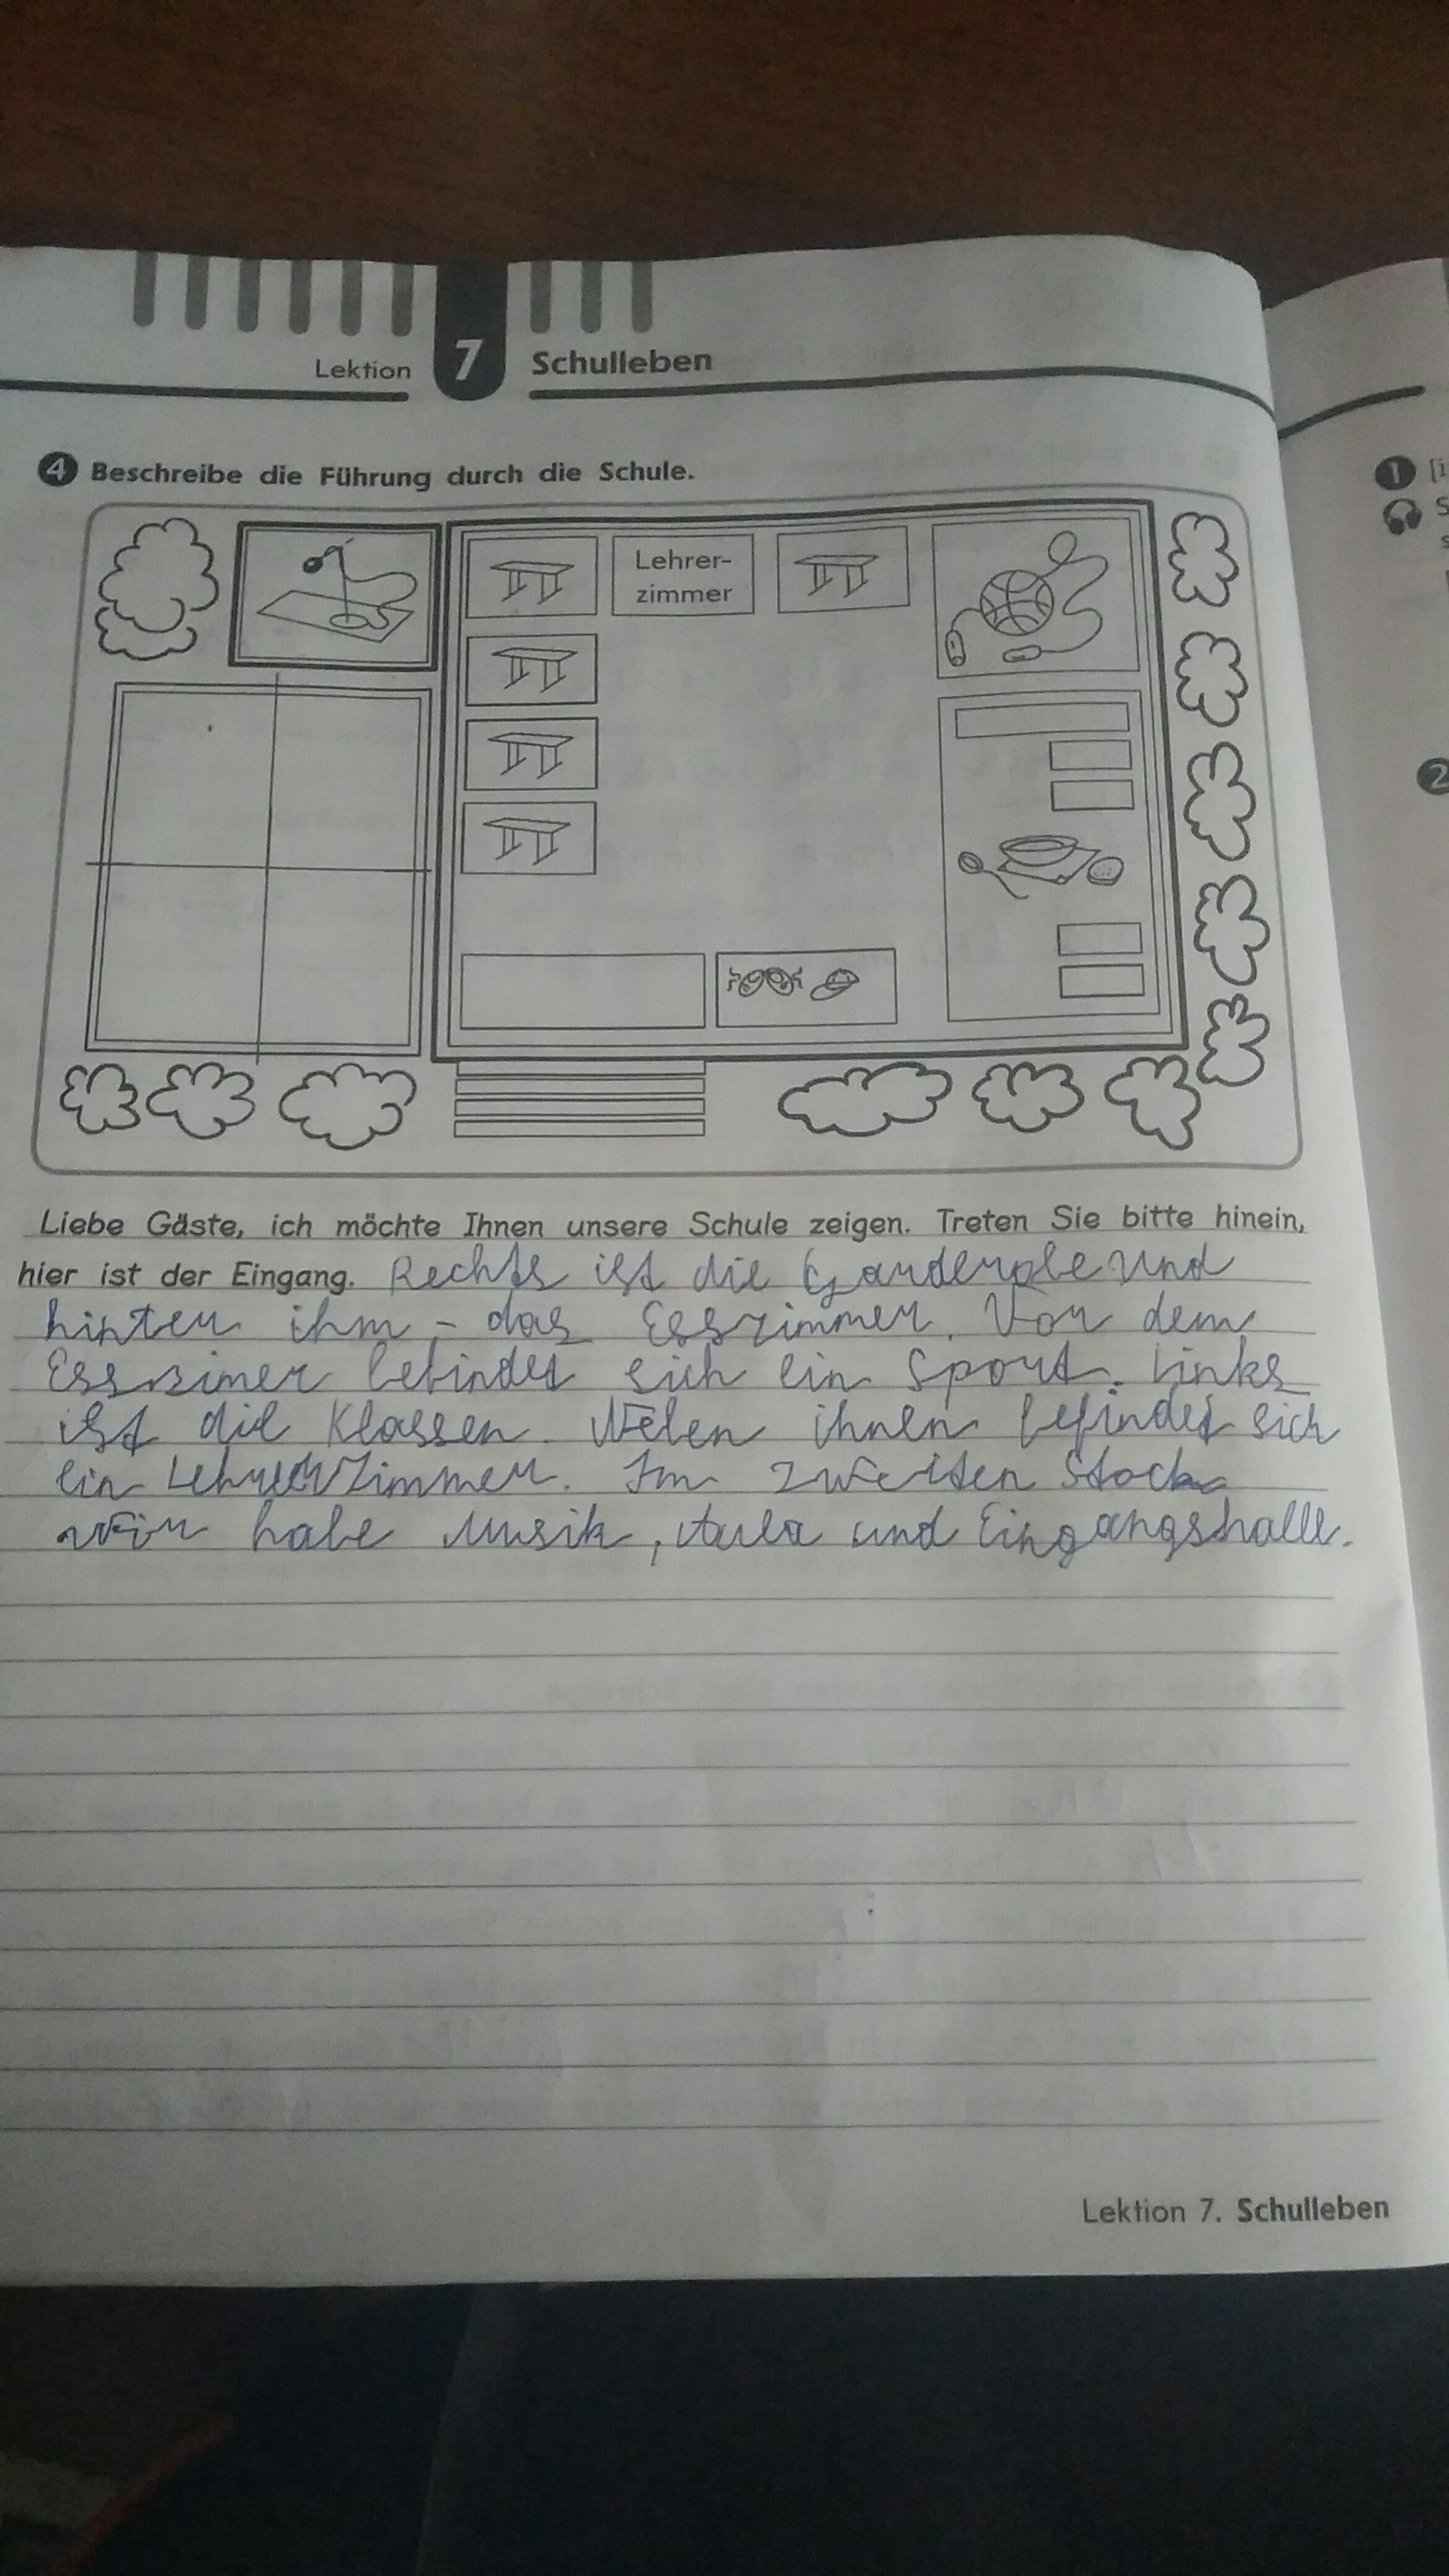 Lektion 7 Schulleben
4 Beschreibe die Führung durch die Schule.
Lehrer-
zimmer
Liebe Gäste, ich möchte Ihnen unsere Schule zeigen. Treten Sie bitte hinein,
hier ist der Eingang. Rechts ist die Garderobe und
hinten ihm - das Esszimmer. Vor dem
Esszimer befindet sich ein Sport. Links
ist die Klassen. Neben ihnen befindet sich
ein Lehrerzimmer. Im zweiten Stock
wir habe Musik, Aula und Eingangshalle.
Lektion 7. Schulleben
1
2